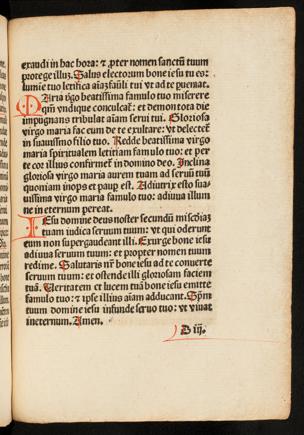 exaudi in hac hora: ⁊ ꝓpter nomen sanctū tuum
protege illuȝ. Salus electorum bone iesu tu es: 
lumie tuo letifica aīaȝ fauli tui vt ad te ꝑueniat.
Maria ꝟgo beatissima famulo tuo miserere
qm̄ vndique conculcat᷑: et demon tota die
impugnans tribulat aīam serui tui. Gloriosa
virgo maria fac eum de te exultare: vt delectet᷑
in suauissimo filio tuo. Redde beatissima virgo
maria spiritualem letitiam famulo tuo: et per
te cor illius confirmet᷑ in domino deo. Inclina
gloriosa virgo maria aurem tuam ad seruū tuū
quoniam inops et paup est. Adiutrix esto sua-
uissima virgo maria famulo tuo: adiuua illum
ne in eternum pereat.
Iesu domine deus noster secundū miscdiaȝ
tuam iudica seruum tuum: vt qui oderunt
eum non supergaudeant illi. Exurge bone iesu
adiuua seruum tuum: et propter nomen tuum
redime. Salutaris nr̄ bone iesu ad te conuerte
seruum tuum: et ostende illi gloriosam faciem
tuā. Ueritatem et lucem tuā bone iesu emitte
famulo tuo: ⁊ ipse illius aīam adducant. Spm̄
tuum domine iesu infunde seruo tuo: vt viuat
in eternum. Amen.
B iij.